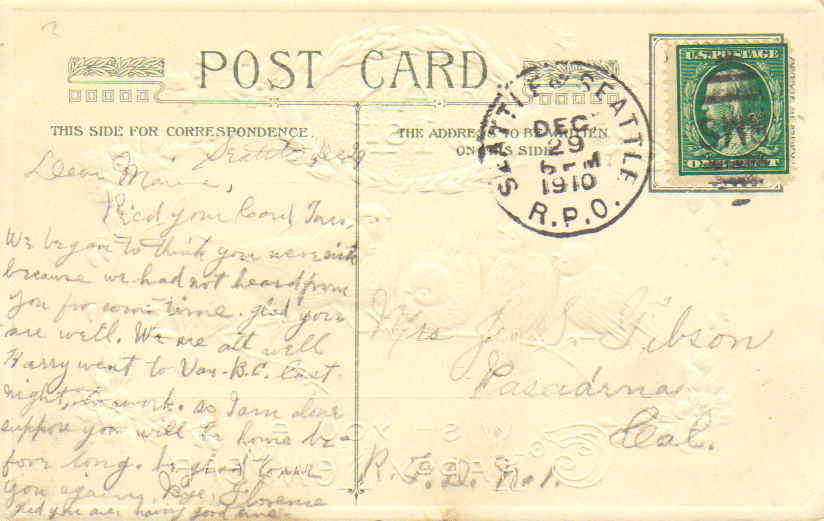 POST CARD
THIS SIDE FOR CORRESPONDENCE.
THE ADDRESS TO BE WRITTEN
ON THIS SIDE
SEATTLE & SEATTLE
DEC
29
PM
1910
R.P.O.
U.S. POSTAGE
ONE CENT
Seattle Dec 29
Dear
Rec'd your Card
We began to think you were sick
because we had not heard from
you for some time. glad your
are well. We are all well
Harry went to Van. B.C. last
night, to work. so I am alone
suppose you will be home be-
fore long. be glad to
you again, Bye, Florence
glad you are having good time.
Mrs J. S. Gibson
Cal.
R. F. D. No. 1.